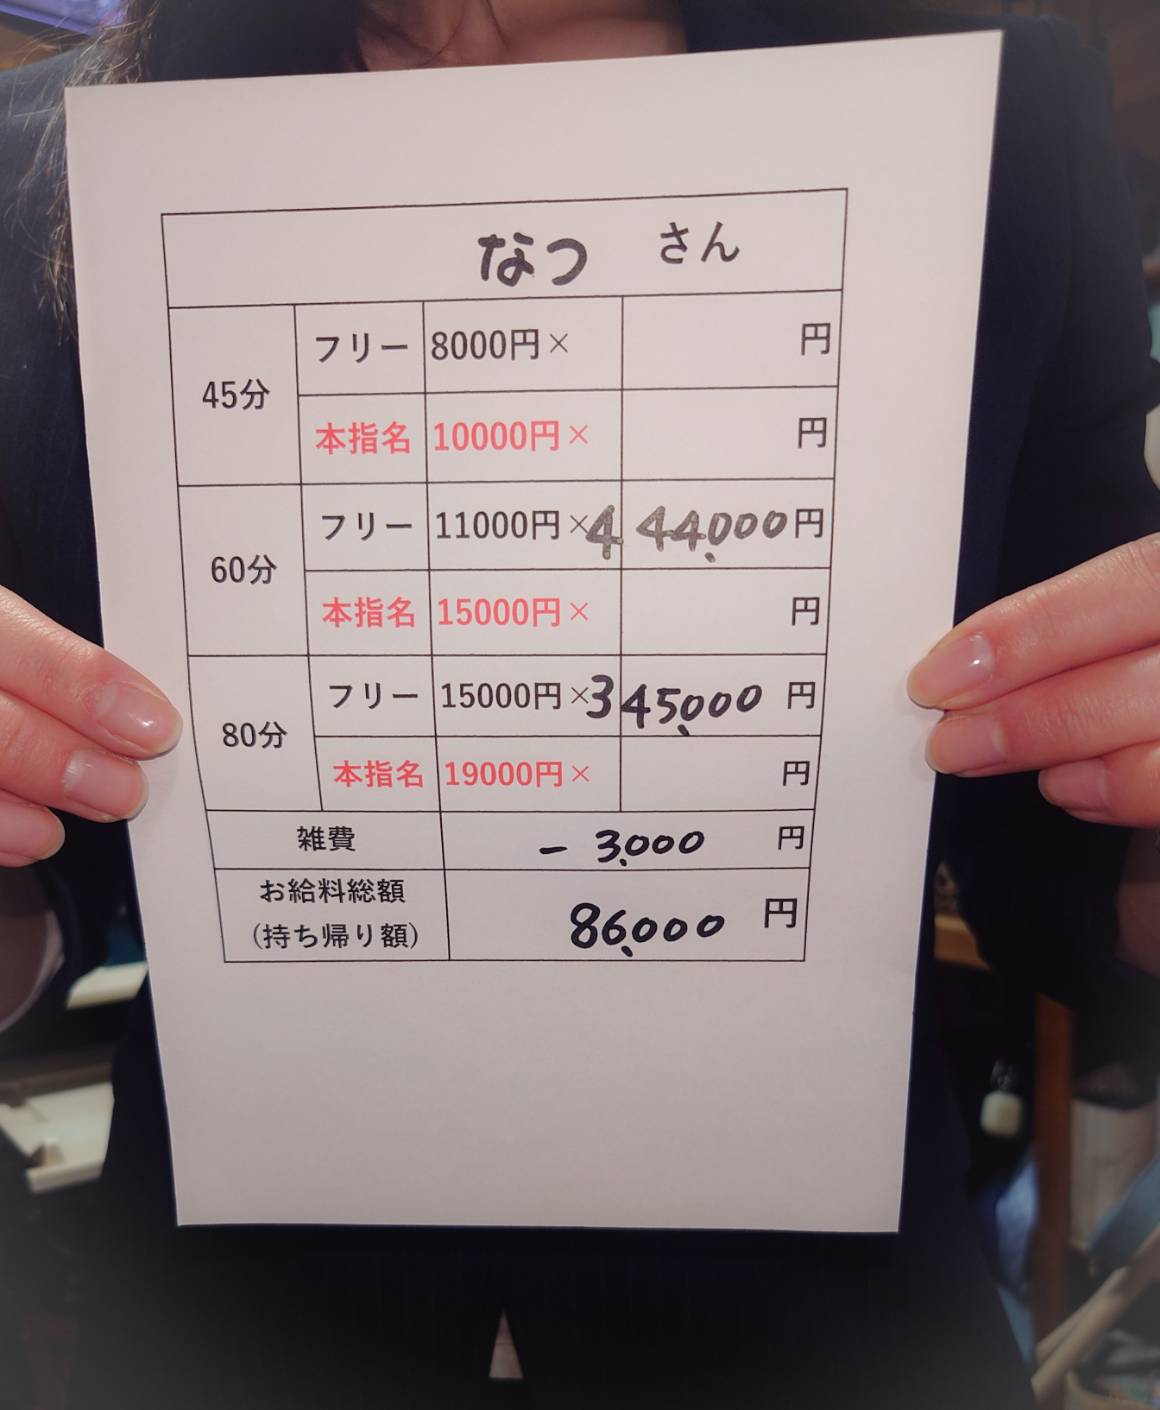 なつ さん
45分
フリー 8000円× 円
本指名 10000円× 円
60分
フリー 11000円×4 44,000円
本指名 15000円× 円
80分
フリー 15000円×3 45,000円
本指名 19000円× 円
雑費 - 3,000 円
お給料総額
(持ち帰り額) 86,000 円